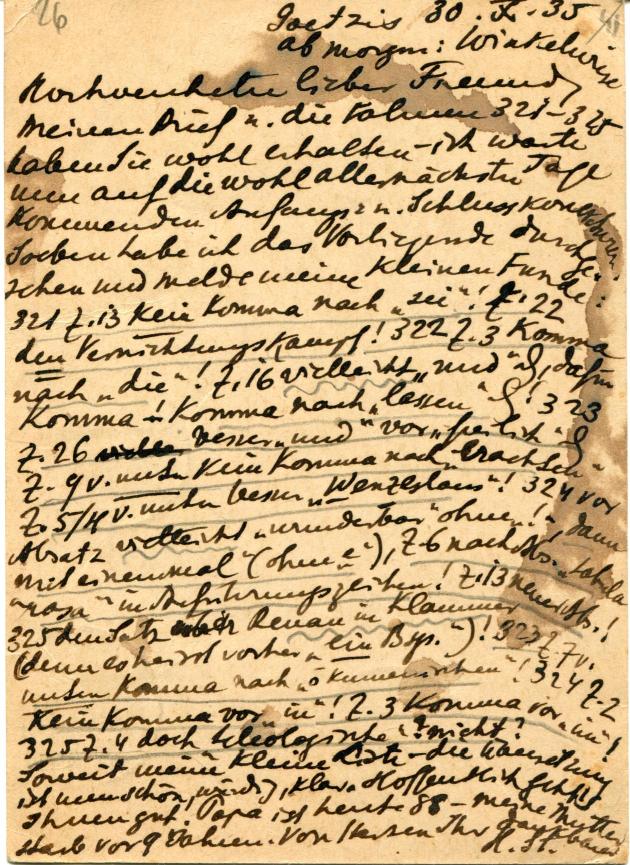 26
Goetzis 30. X. 35
ab morgen: Winkelwiese
lieber Freund,
meinen Brief u. die Fahnen 321-325
haben Sie wohl erhalten - ich warte
nun auf die wohl allernächster Tage
kommenden Anfangs- u. Schlusskorrekturen.
Soeben habe ich das Vorliegende durchge-
sehen und melde meine kleinen Funde:
321 Z. 13 kein Komma nach „sei"! Z. 22
den Vernichtungskampf! 322 Z. 3 Komma
nach „die"! Z. 16 vielleicht „und" dafür
Komma! Komma nach „lassen"! 323
Z. 26 besser „und" vor
Z. 9 v. unten kein Komma nach
Z. 5/4 v. unten besser „Wenzeslaus"! 324 vor
Absatz vielleicht „wunderbar" ohne! dann
mit einemmal (ohne „e"), Z. 6 nach „tabula
rasa" in Anführungszeichen! Z. 13 neuer Abs.!
325 den Satz über Renan in Klammer
(denn es heisst vorher „ein Bsp.")! 323 Z. 7 v.
unten Komma nach „ökumenischen"! 324 Z. 2
kein Komma vor „in"! Z. 3 Komma vor „im"!
325 Z. 4 doch „theologische"? nicht?
Soweit meine kleine Liste - die Übersetzung
ist nun schön, würdig, klar. Hoffentlich geht's
Ihnen gut. Papa ist heute 88 - meine Mutter
starb vor 9 Jahren. Von Herzen Ihr dankbarer